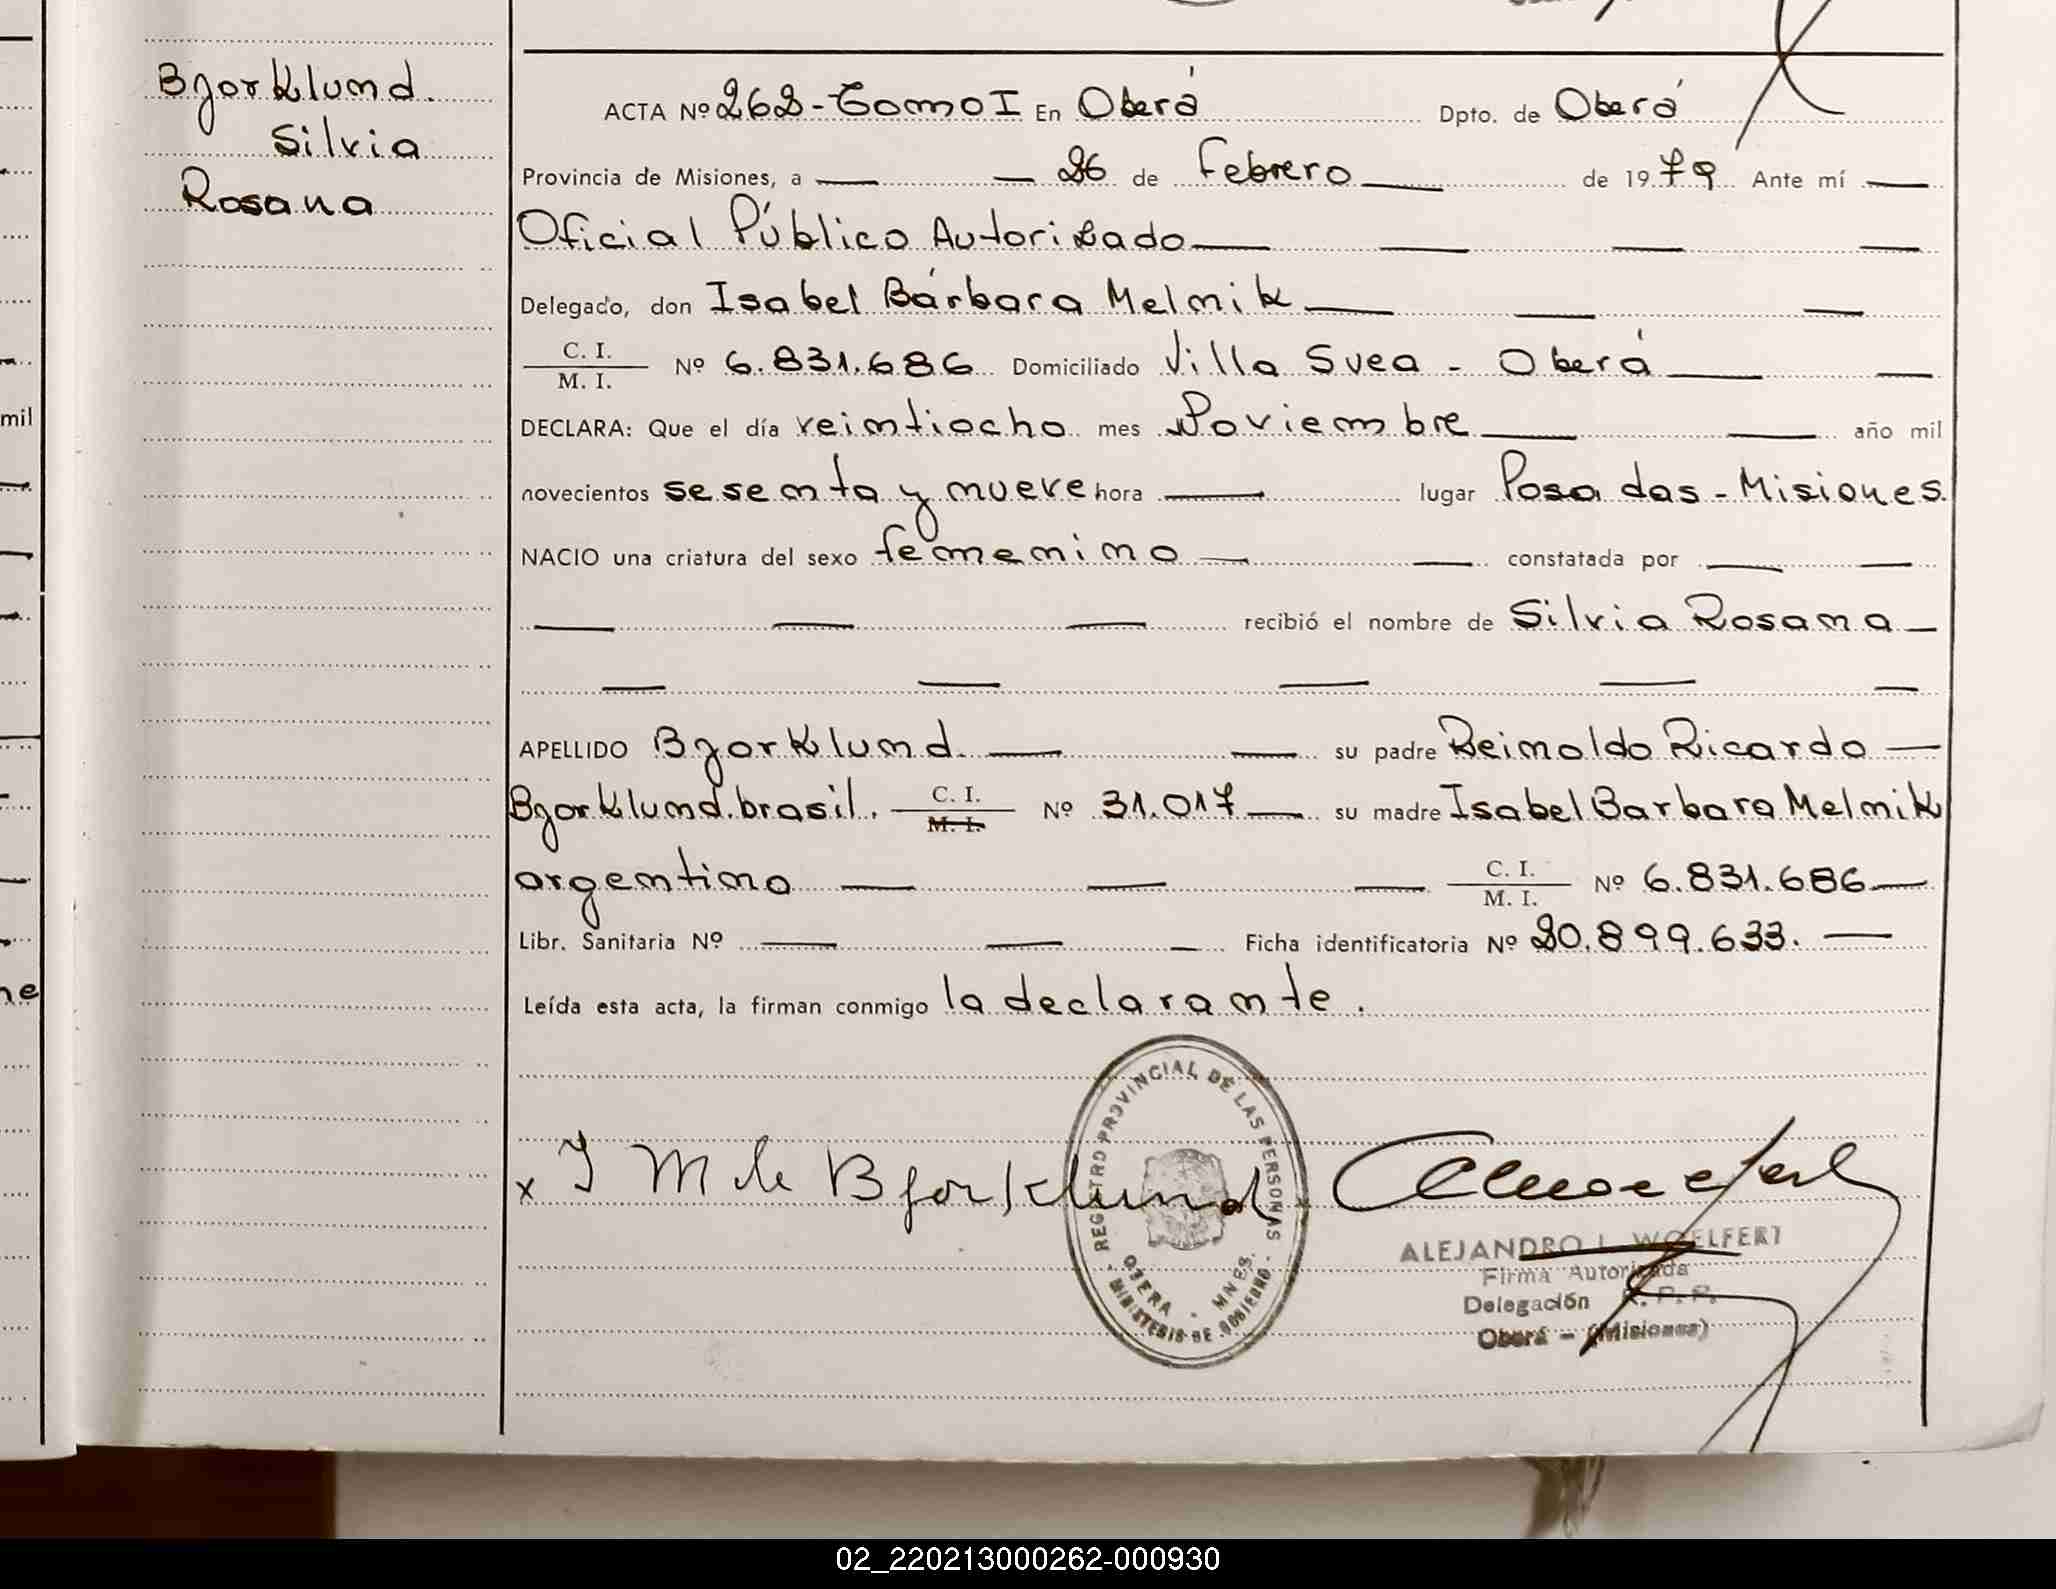 Bjorklund.
Silvia
Rosana
ACTA Nº 262 - Tomo I En Oberá Dpto. de Oberá
Provincia de Misiones, a — — 26 de Febrero — de 1979 Ante mí —
Oficial Público Autorizado — — — —
Delegado, don Isabel Bárbara Melnik — — —
C. I.
M. I. Nº 6.831.686 Domiciliado Villa Svea - Oberá — —
DECLARA: Que el día veintiocho mes Noviembre — — año mil
novecientos sesenta y nueve hora — lugar Posadas - Misiones
NACIO una criatura del sexo femenino — — constatada por — —
— — — recibió el nombre de Silvia Rosana —
— — — — —
APELLIDO Bjorklund. — — su padre Reinoldo Ricardo —
Bjorklund. brasil. C. I.
M. I. Nº 31.017 — su madre Isabel Barbara Melnik
argentina — — — C. I.
M. I. Nº 6.831.686 —
Libr. Sanitaria Nº — — — Ficha identificatoria Nº 20.899.633. —
Leída esta acta, la firman conmigo la declarante.
x I M de Bjorklund
REGISTRO PROVINCIAL DE LAS PERSONAS
OBERA - MNES.
- MINISTERIO DE GOBIERNO -
ALEJANDRO L. WOELFERT
Firma Autorizada
Delegación R. P. P.
Oberá - (Misiones)
mil
ne
02_220213000262-000930